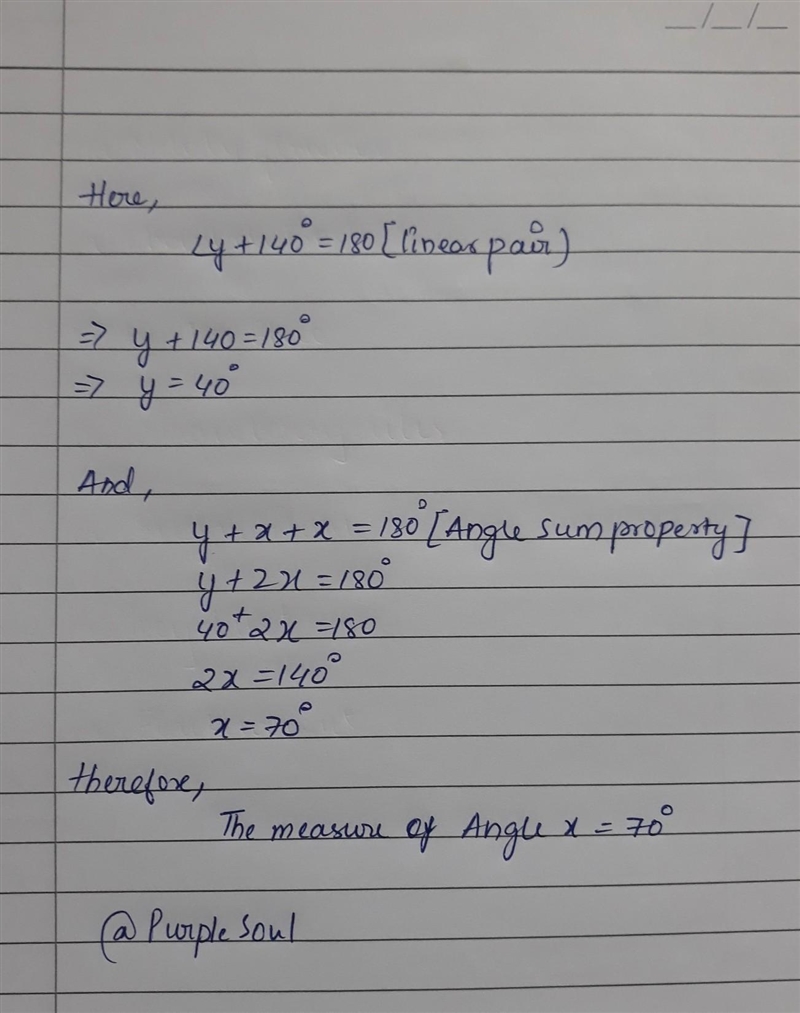 __/__/__
Here,
∠y + 140° = 180° [linear pair)
⇒ y + 140 = 180°
⇒ y = 40°
And,
y + x + x = 180° [Angle sum property]
y + 2x = 180°
40 + 2x = 180
2x = 140°
x = 70°
therefore,
The measure of Angle x = 70°
@ Purple Soul